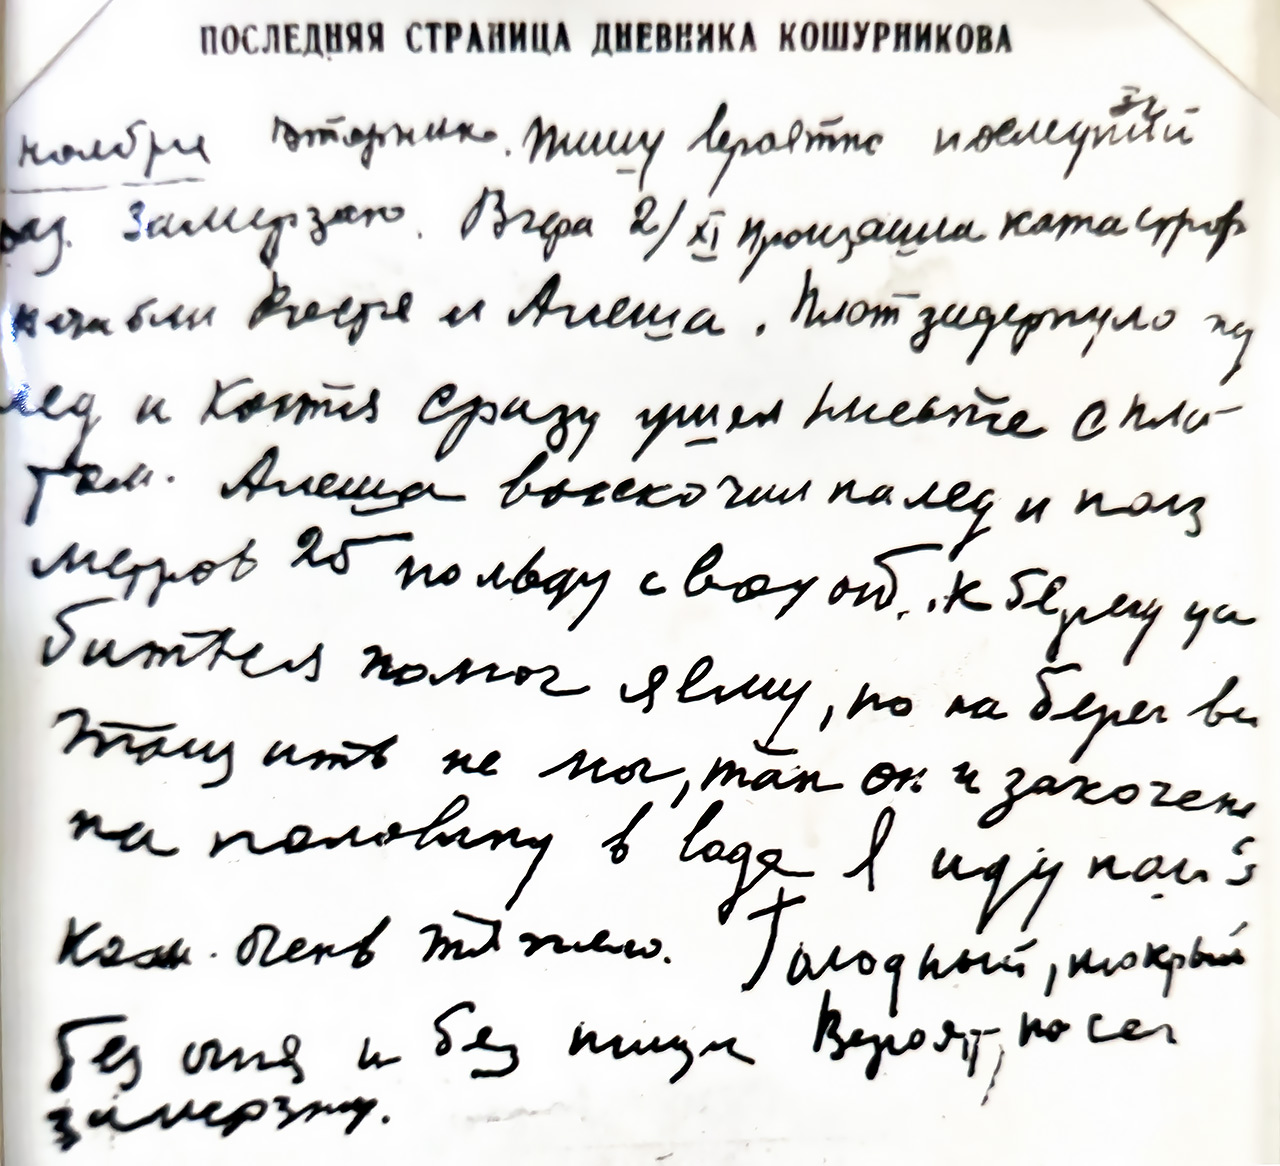 ПОСЛЕДНЯЯ СТРАНИЦА ДНЕВНИКА КОШУРНИКОВА
ноября вторник. Пишу вероятно последний
раз. Замерзаю. Вчера 2/XI произошла катастроф
погибли Костя и Алеша. Плот задернуло под
лед и Костя сразу ушел вместе с пло-
том. Алеша выскочил на лед и полз
метров 25 по льду с водой. К берегу про
биться помог я ему, но на берег вы
тащить не мог, так он и закочене
на половину в воде Я иду полз
ком. Очень тяжело. Голодный, мокрый
без огня и без пищи Вероятно сег
замерзну.